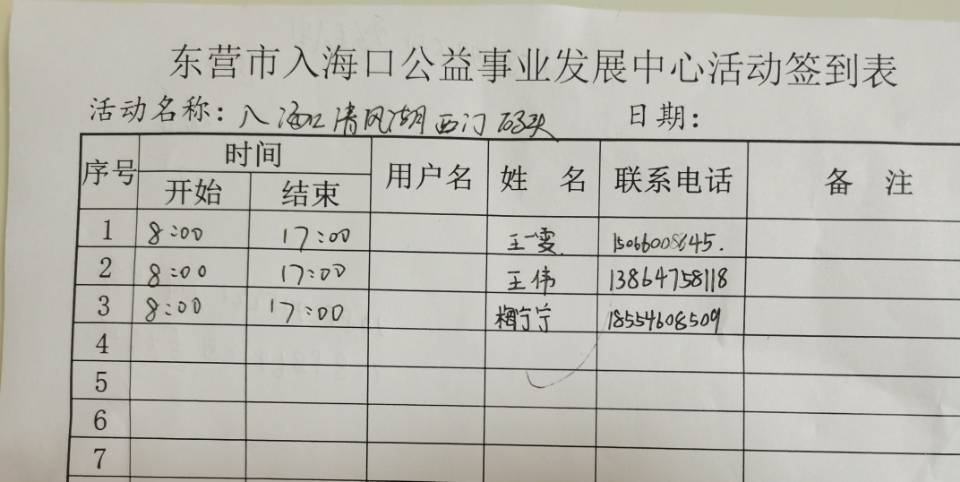 东营市入海口公益事业发展中心活动签到表
活动名称：入海口清风湖西门码头 日期：
序号 时间 用户名 姓 名 联系电话 备 注
开始 结束
1 8:00 17:00 王一雯 15066008645.
2 8:00 17:00 王伟 13864758118
3 8:00 17:00 梅宁宁 18554608509
4
5
6
7